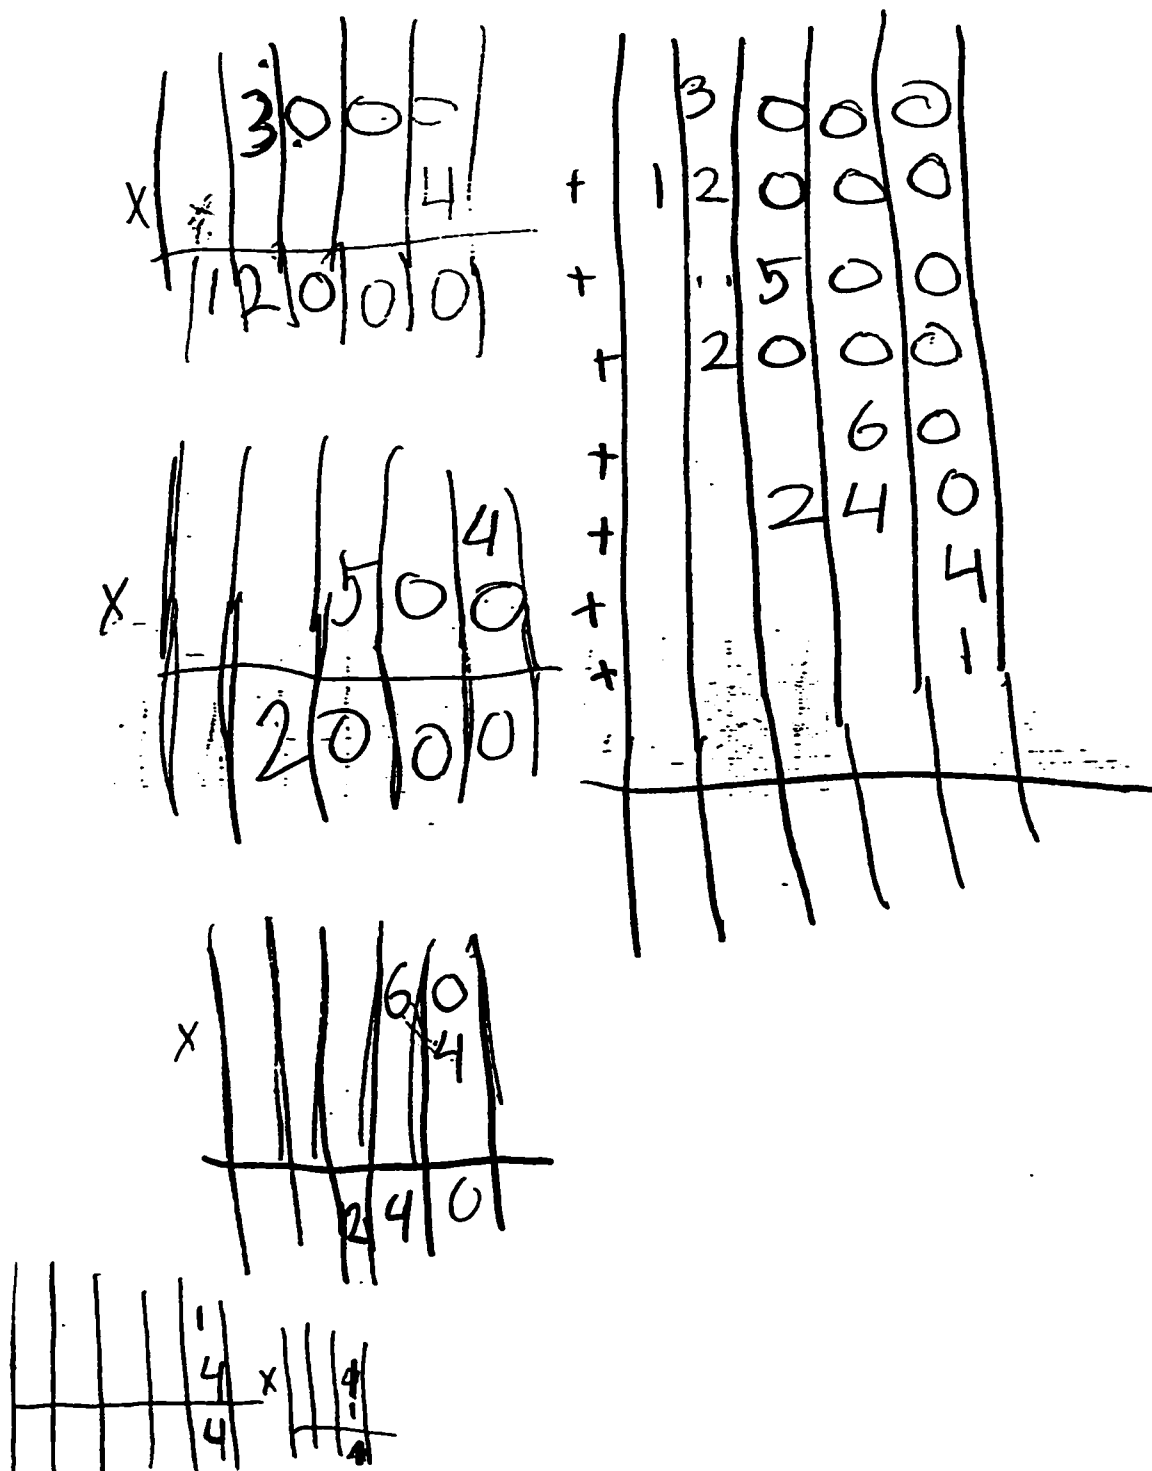 3000
x 4
12000
4
x 500
2000
60
x 4
240
1
4
4
x 4
1
4
3000
+ 12000
+ 500
+ 2000
+ 60
+ 240
+ 4
+ 1